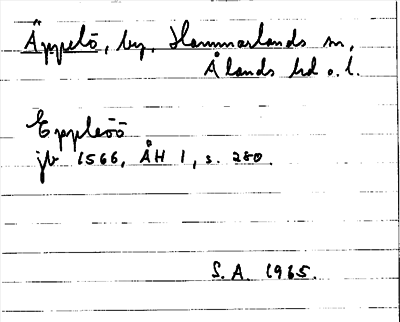 Äppelö, by, Hammarlands sn,
Ålands hd o. l.
Eppleöö
jb 1566, ÅH 1, s. 280.
S. A. 1965.